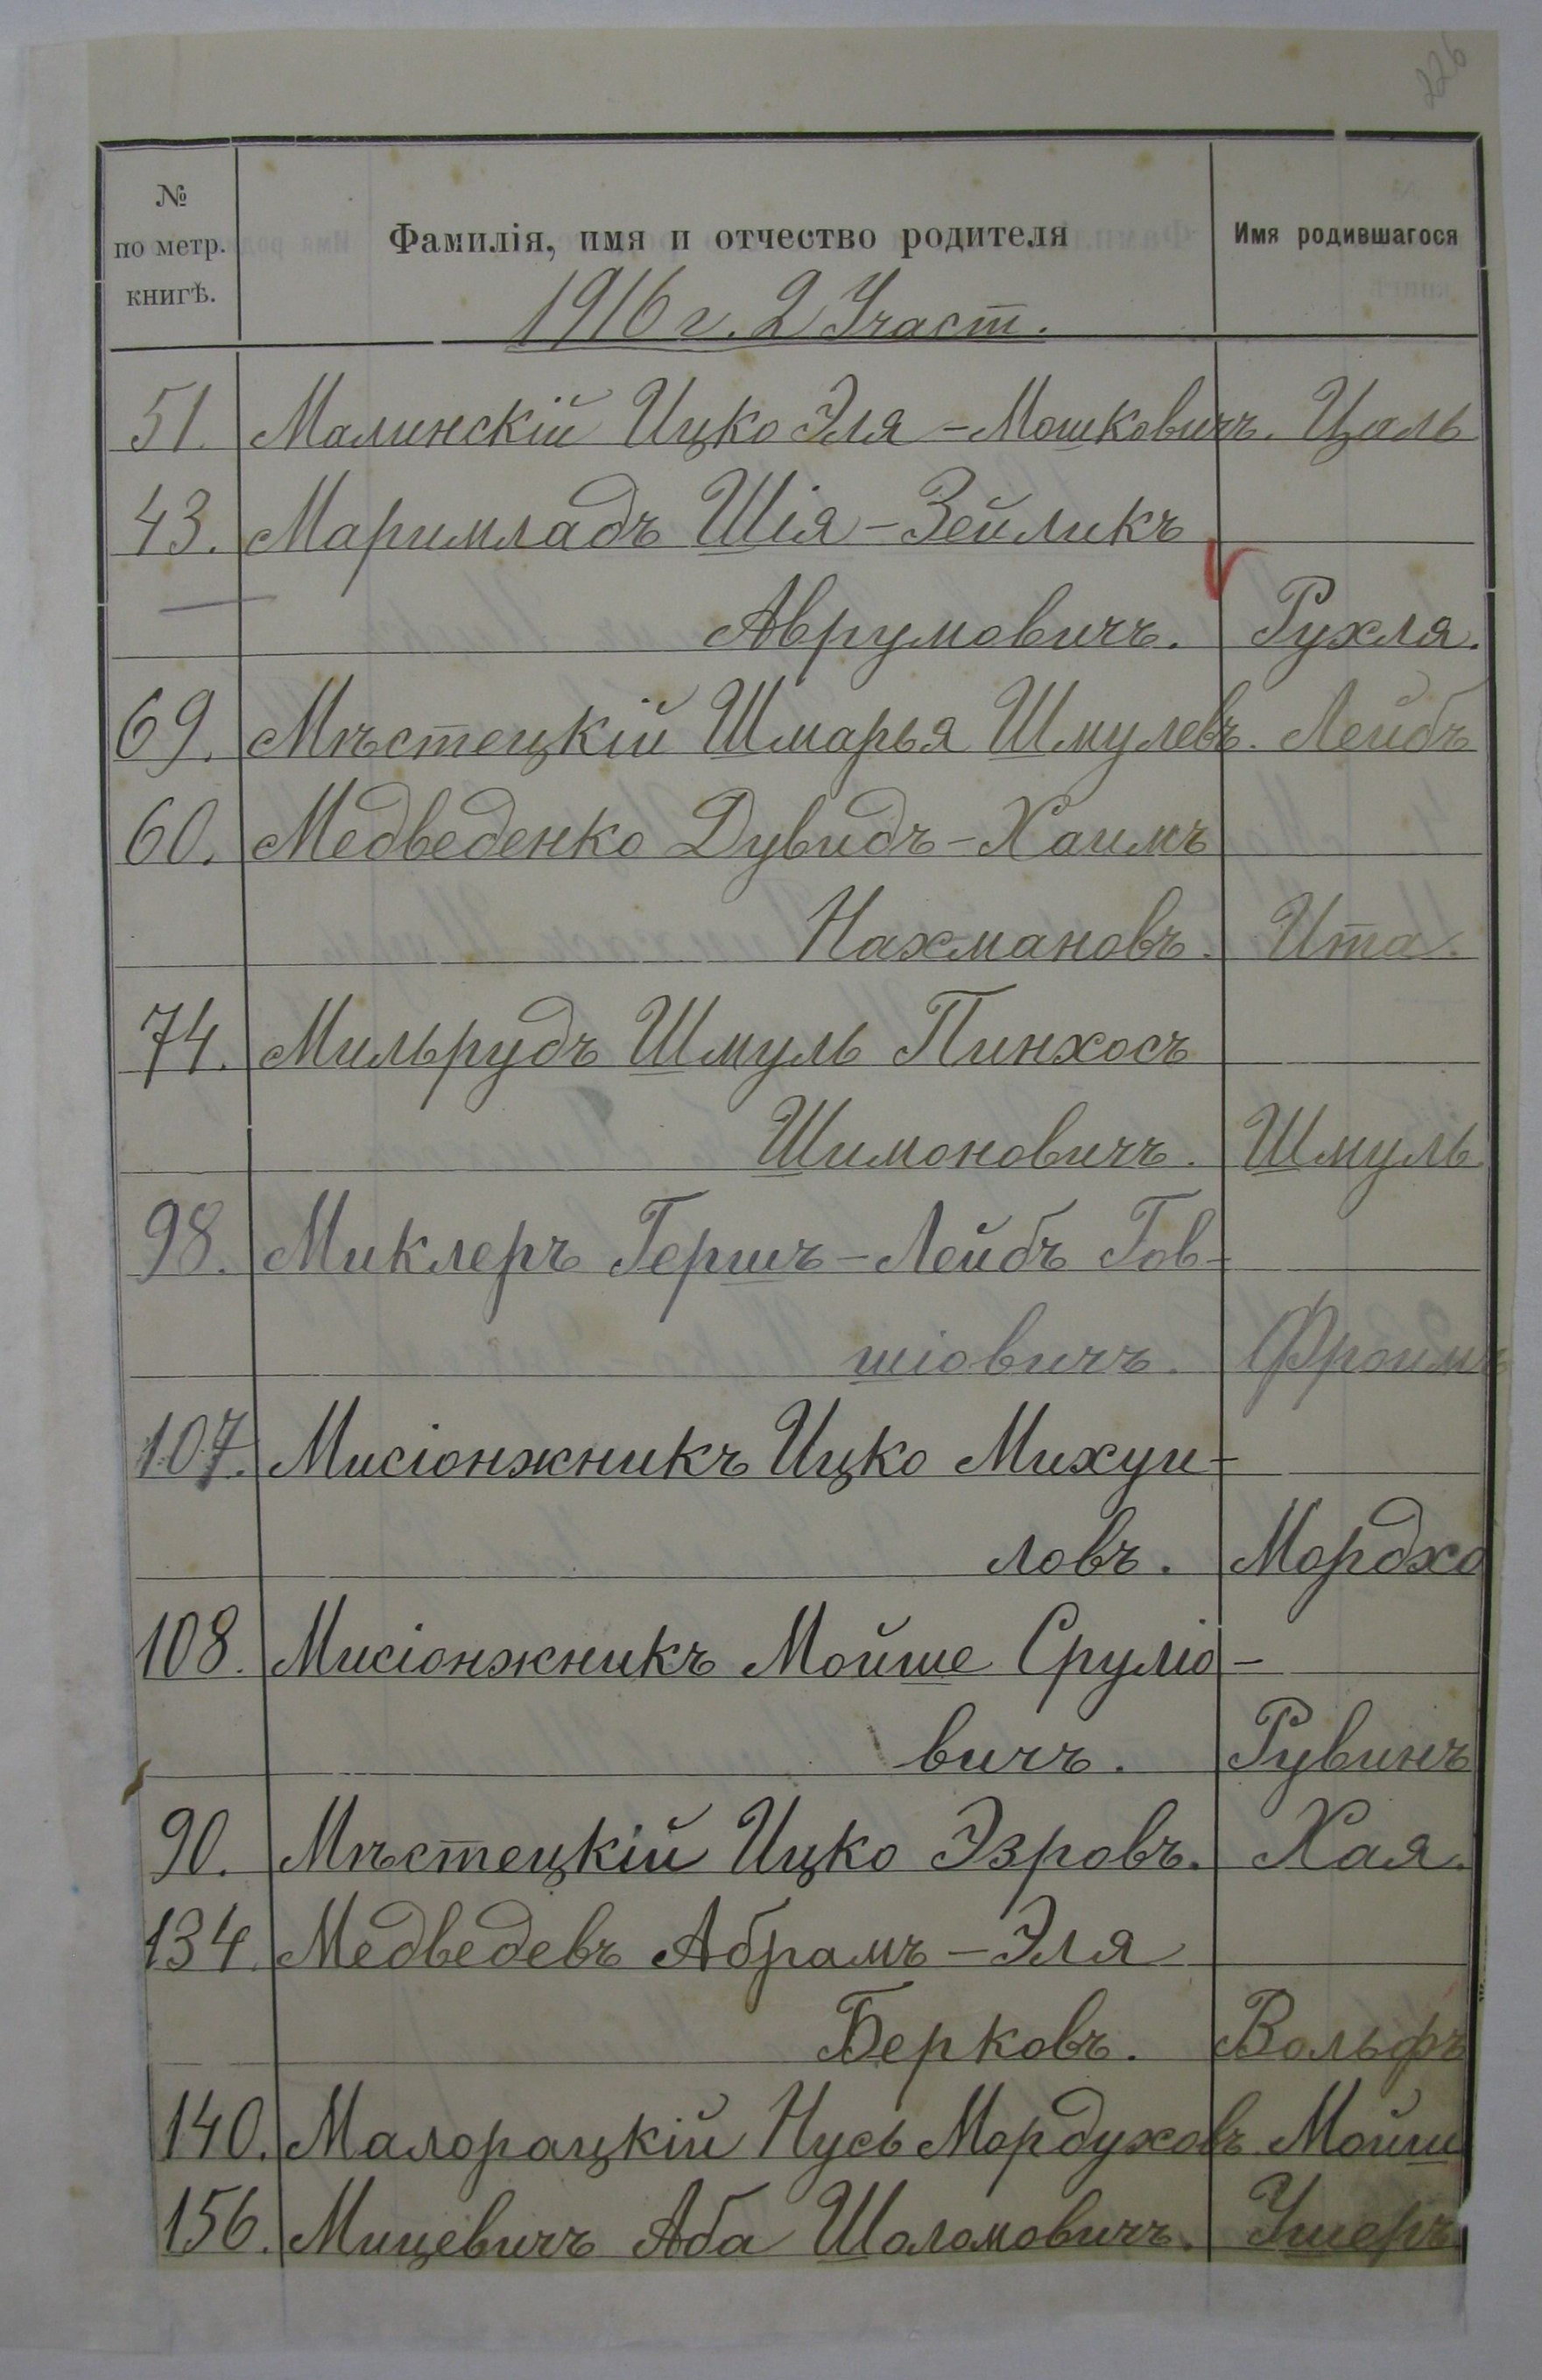 226
№ по метр. книгѣ.
Фамилія, имя и отчество родителя
Имя родившагося
1916 г. 2 Участ.
51. Малинскій Ицко Эля-Мошковичъ. Цаль
43. Маримладъ Шія-Зейликъ
Аврумовичъ. Рухля.
69. Мѣстецкій Шмарья Шмулевъ. Лейбъ
60. Медведенко Дувидъ-Хаимъ
Нахмановъ. Ита.
74. Мильрудъ Шмуль Пинхосъ
Шимоновичъ. Шмуль
98. Миклеръ Гершъ-Лейбъ Гов-
шіовичъ. Фроимъ
107. Мисіонжникъ Ицко Михуи-
ловъ. Мордхо
108. Мисіонжникъ Мойше Сруліо-
вичъ. Рувинъ
90. Мѣстецкій Ицко Эзровъ. Хая.
134. Медведевъ Абрамъ-Эля
Берковъ. Вольфъ
140. Малорацкій Нусь Мордуховъ Мойш
156. Мицевичъ Аба Шоломовичъ. Ушеръ.